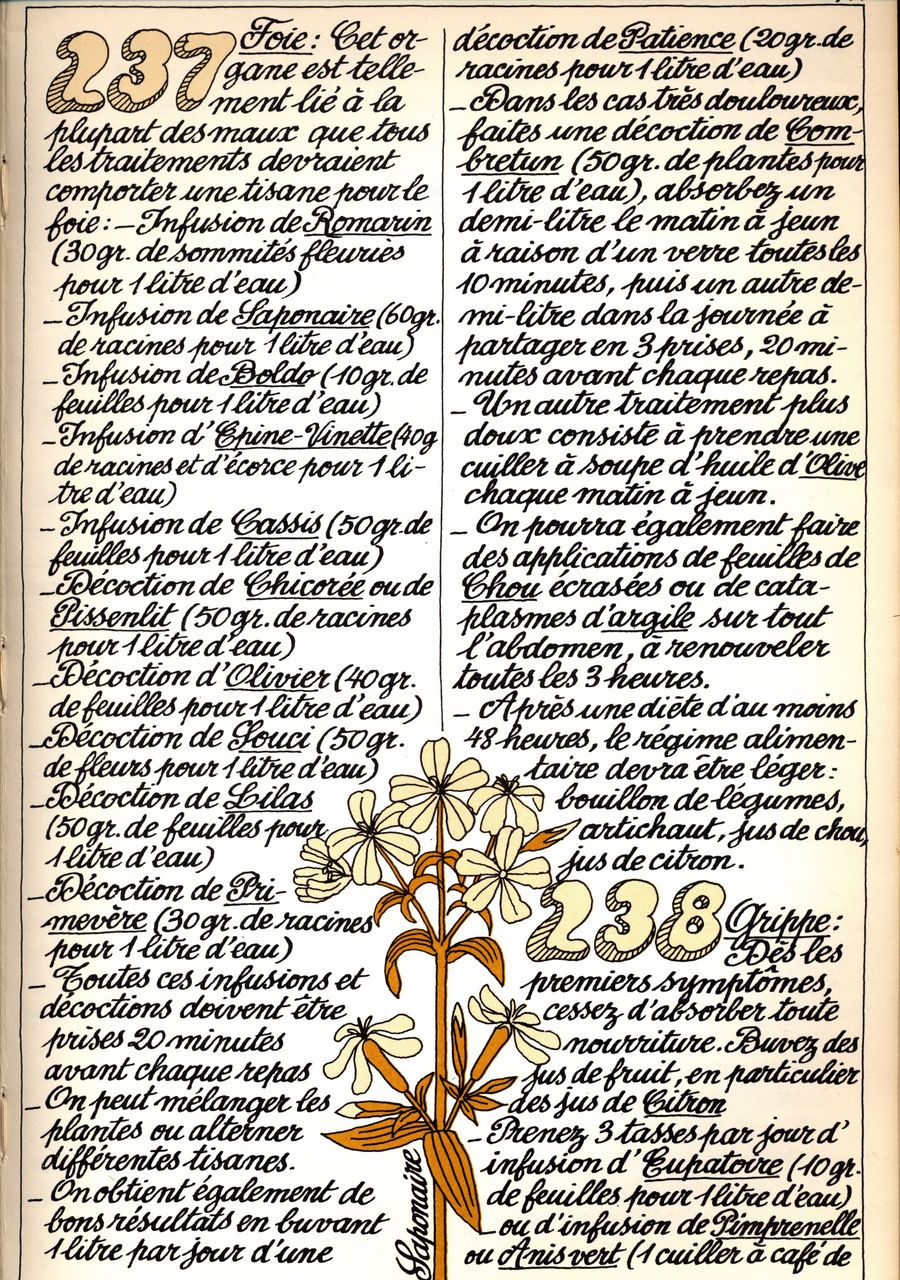 237 Foie: Cet or-
gane est telle-
ment lié à la
plupart des maux que tous
les traitements devraient
comporter une tisane pour le
foie: – Infusion de Romarin
(30gr. de sommités fleuries
pour 1 litre d'eau)
– Infusion de Saponaire (60gr.
de racines pour 1 litre d'eau)
– Infusion de Boldo (10gr. de
feuilles pour 1 litre d'eau)
– Infusion d'Epine-Vinette (40g
de racines et d'écorce pour 1 li-
tre d'eau)
– Infusion de Cassis (50gr. de
feuilles pour 1 litre d'eau)
– Décoction de Chicorée ou de
Pissenlit (50gr. de racines
pour 1 litre d'eau)
– Décoction d'Olivier (40gr.
de feuilles pour 1 litre d'eau)
– Décoction de Souci (50gr.
de fleurs pour 1 litre d'eau)
– Décoction de Lilas
(50gr. de feuilles pour
1 litre d'eau)
– Décoction de Pri-
mevère (30gr. de racines
pour 1 litre d'eau)
– Toutes ces infusions et
décoctions doivent être
prises 20 minutes
avant chaque repas
– On peut mélanger les
plantes ou alterner
différentes tisanes.
– On obtient également de
bons résultats en buvant
1 litre par jour d'une
décoction de Patience (20gr. de
racines pour 1 litre d'eau)
– Dans les cas très douloureux,
faites une décoction de Com-
bretun (50gr. de plantes pour
1 litre d'eau), absorbez un
demi-litre le matin à jeun
à raison d'un verre toutes les
10 minutes, puis un autre de-
mi-litre dans la journée à
partager en 3 prises, 20 mi-
nutes avant chaque repas.
– Un autre traitement plus
doux consiste à prendre une
cuiller à soupe d'huile d'Olive
chaque matin à jeun.
– On pourra également faire
des applications de feuilles de
Chou écrasées ou de cata-
plasmes d'argile sur tout
l'abdomen, à renouveler
toutes les 3 heures.
– Après une diète d'au moins
48 heures, le régime alimen-
taire devra être léger:
bouillon de légumes,
artichaut, jus de chou,
jus de citron.
238 Grippe:
Dès les
premiers symptômes,
cessez d'absorber toute
nourriture. Buvez des
jus de fruit, en particulier
des jus de Citron
– Prenez 3 tasses par jour d'
infusion d'Eupatoire (10gr.
de feuilles pour 1 litre d'eau)
– ou d'infusion de Pimprenelle
ou d'Anis vert (1 cuiller à café de
Saponaire